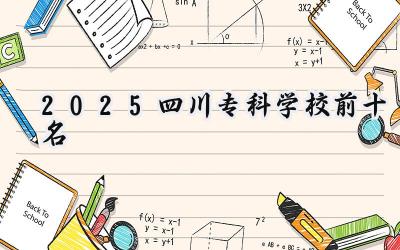 sin A
ax2 + bx +c = 0
3X2
Back To
School
f(x) = x-1
x = x-1
x = y+1
C
2025四川专科学校前十
名
Back To
School
f(x) = x-1
y = x-1
x = y+1
7²